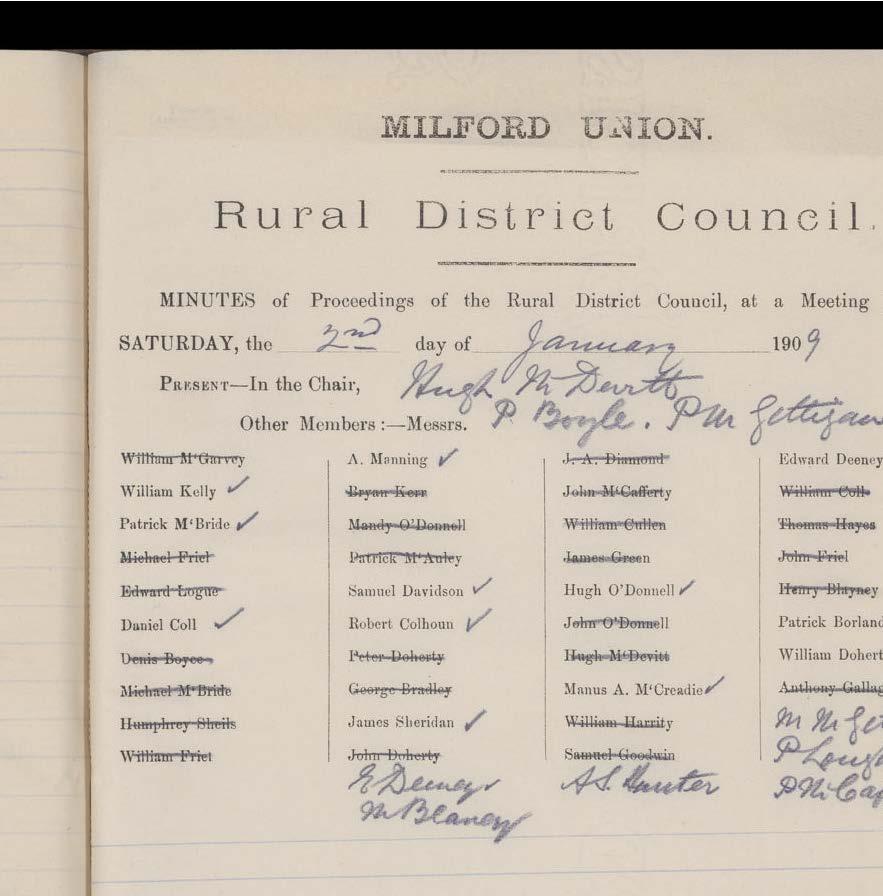 MILFORD UNION.
Rural District Council.
MINUTES of Proceedings of the Rural District Council, at a Meeting
SATURDAY, the 2nd day of January 1909
PRESENT—In the Chair, Hugh McDevitt
Other Members :—Messrs. P. Boyle. P McGettigan
William M‘Garvey A. Manning ✓ J. A. Diamond Edward Deeney
William Kelly ✓ Bryan Kerr John M‘Cafferty William Coll
Patrick M‘Bride ✓ Mandy O’Donnell William Cullen Thomas Hayes
Michael Friel Patrick M‘Auley James Green John Friel
Edward Logue Samuel Davidson ✓ Hugh O’Donnell ✓ Henry Blayney
Daniel Coll ✓ Robert Colhoun ✓ John O’Donnell Patrick Borland
Denis Boyce Peter Doherty Hugh M‘Devitt William Dohert
Michael M‘Bride George Bradley Manus A. M‘Creadie ✓ Anthony Gallag
Humphrey Sheils James Sheridan ✓ William Harrity M McGet
William Friel John Doherty Samuel Goodwin P Lough
E Deeney A S. Hunter P McCaf
M Blaney